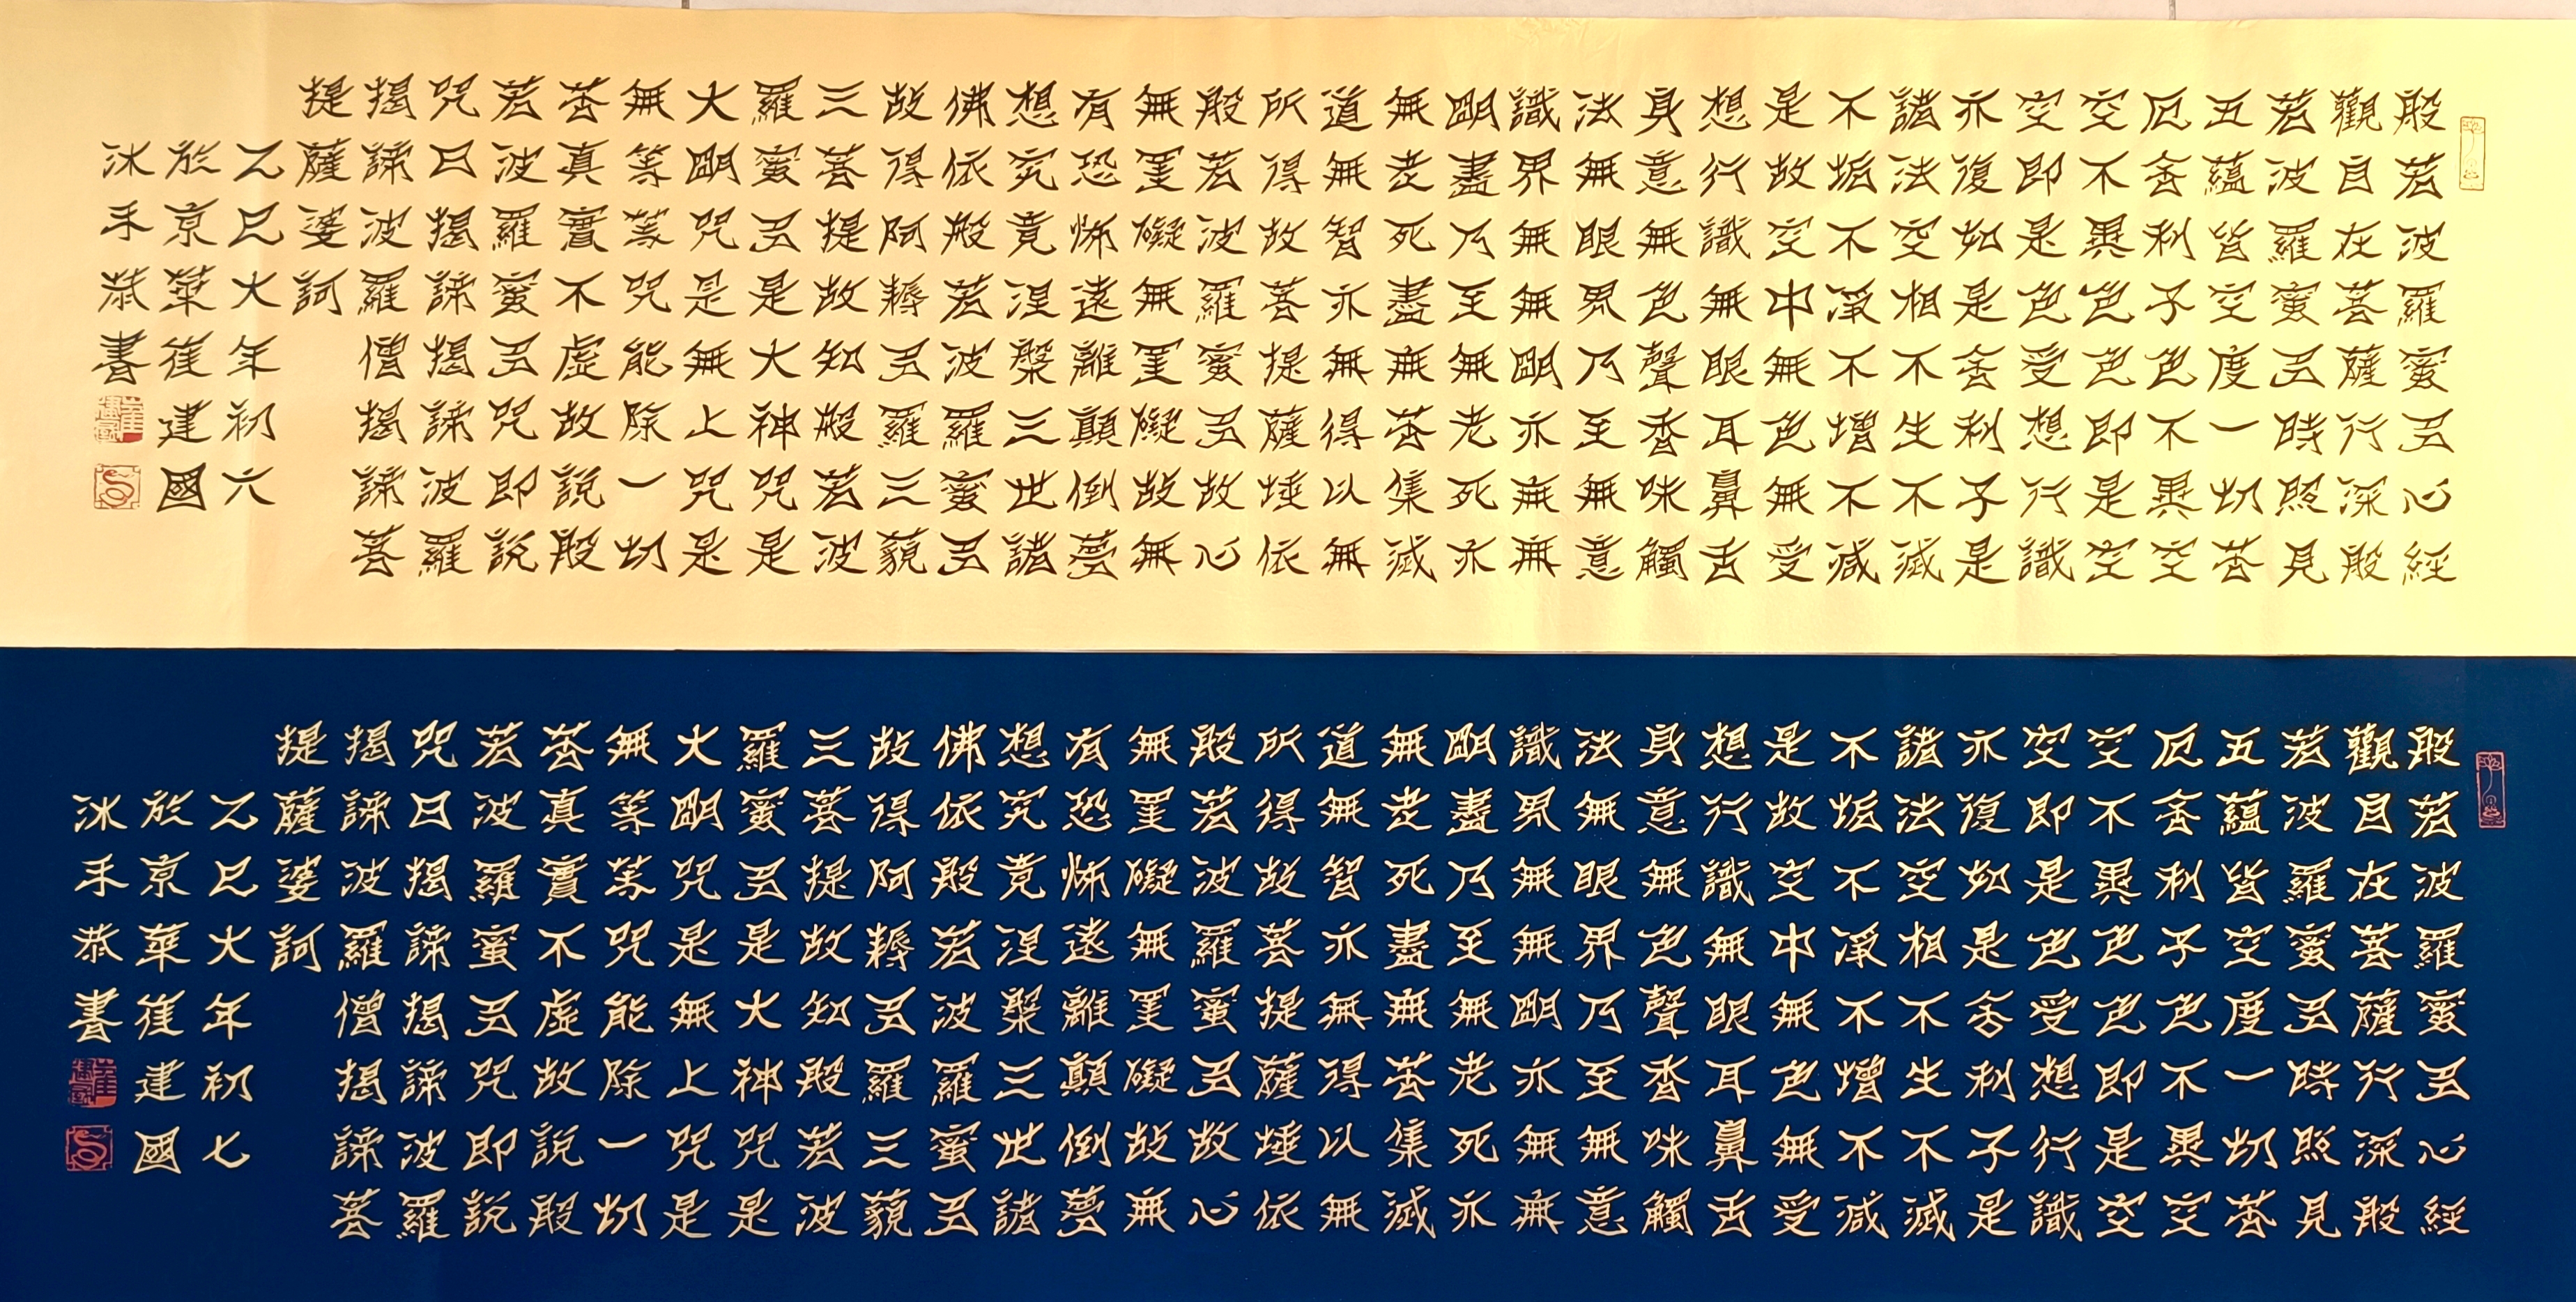 般若波羅蜜多心經
觀自在菩薩行深般
若波羅蜜多時照見
五蘊皆空度一切苦
厄舍利子色不異空
空不異色色即是空
空即是色受想行識
亦復如是舍利子是
諸法空相不生不滅
不垢不淨不增不減
是故空中無色無受
想行識無眼耳鼻舌
身意無色聲香味觸
法無眼界乃至無意
識界無無明亦無無
明盡乃至無老死亦
無老死盡無苦集滅
道無智亦無得以無
所得故菩提薩埵依
般若波羅蜜多故心
無罣礙無罣礙故無
有恐怖遠離顛倒夢
想究竟涅槃三世諸
佛依般若波羅蜜多
故得阿耨多羅三藐
三菩提故知般若波
羅蜜多是大神咒是
大明咒是無上咒是
無等等咒能除一切
苦真實不虛故說般
若波羅蜜多咒即說
咒曰揭諦揭諦波羅
揭諦波羅僧揭諦菩
提薩婆訶
乙巳大年初六
於京華崔建國
沐手恭書
崔建國
般若波羅蜜多心經
觀自在菩薩行深般
若波羅蜜多時照見
五蘊皆空度一切苦
厄舍利子色不異空
空不異色色即是空
空即是色受想行識
亦復如是舍利子是
諸法空相不生不滅
不垢不淨不增不減
是故空中無色無受
想行識無眼耳鼻舌
身意無色聲香味觸
法無眼界乃至無意
識界無無明亦無無
明盡乃至無老死亦
無老死盡無苦集滅
道無智亦無得以無
所得故菩提薩埵依
般若波羅蜜多故心
無罣礙無罣礙故無
有恐怖遠離顛倒夢
想究竟涅槃三世諸
佛依般若波羅蜜多
故得阿耨多羅三藐
三菩提故知般若波
羅蜜多是大神咒是
大明咒是無上咒是
無等等咒能除一切
苦真實不虛故說般
若波羅蜜多咒即說
咒曰揭諦揭諦波羅
揭諦波羅僧揭諦菩
提薩婆訶
乙巳大年初七
於京華崔建國
沐手恭書
崔建國